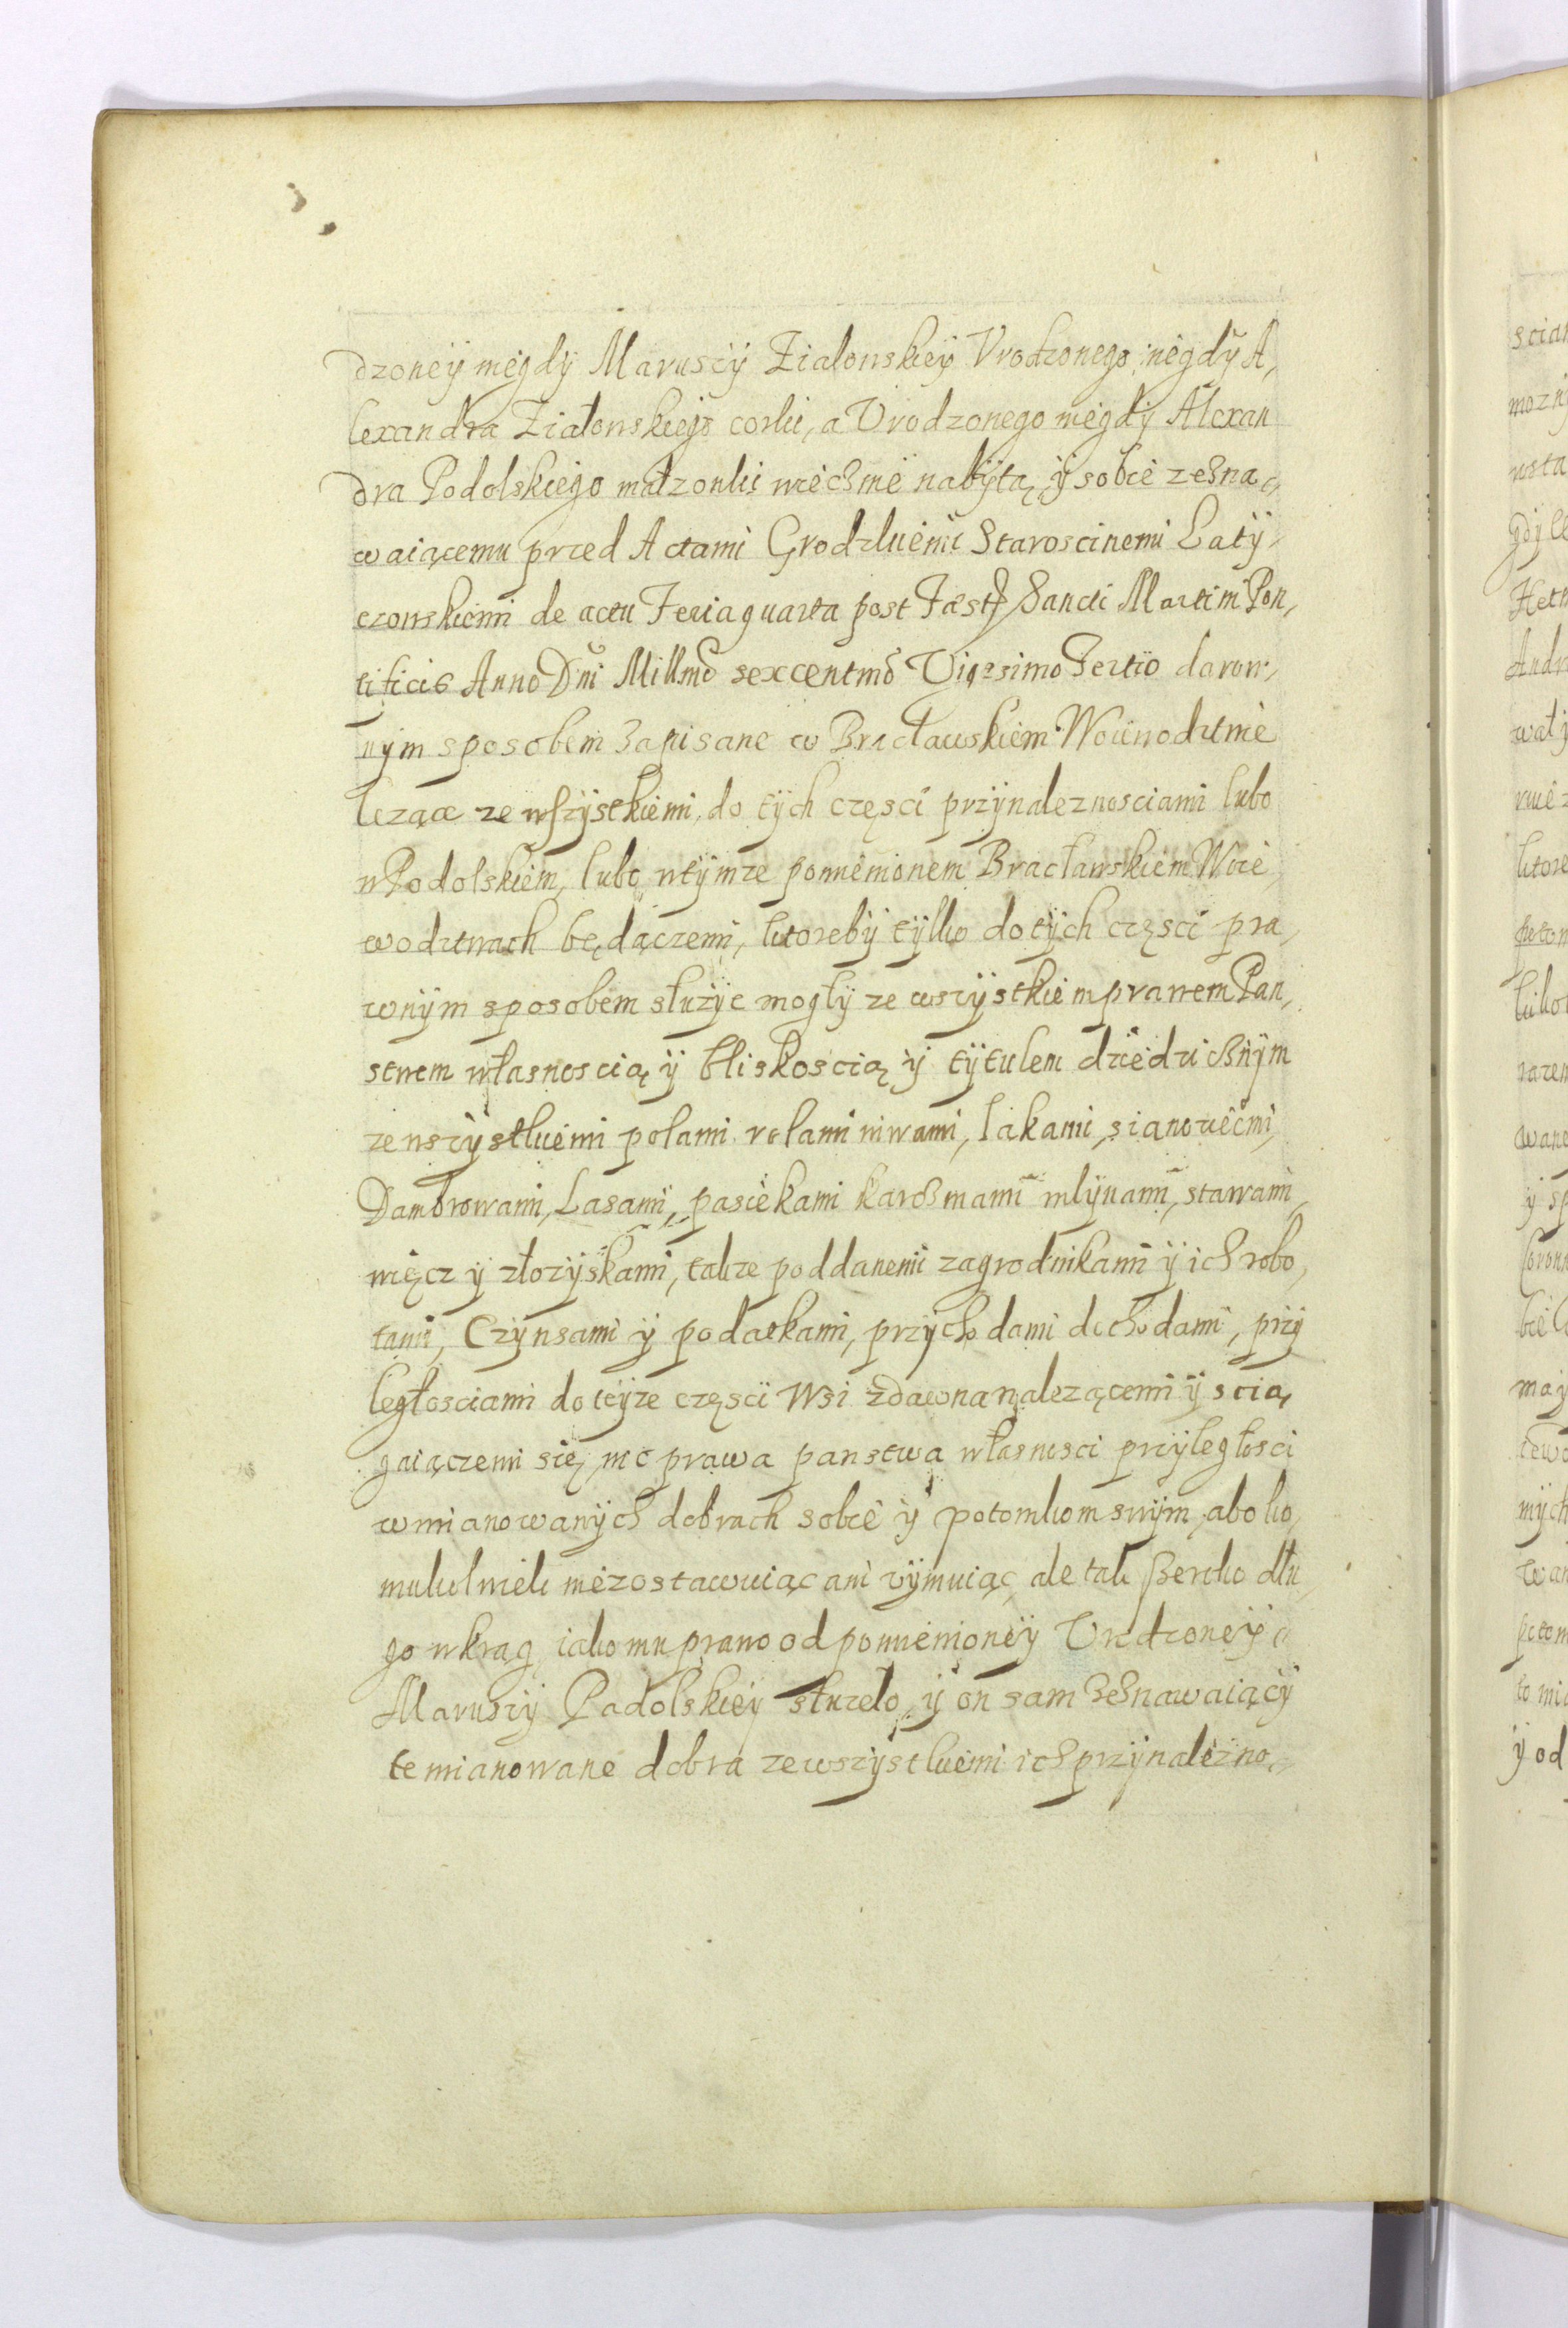 dzoneÿ niegdÿ Maruszÿ Ziałowskieÿ Vrodzonego niegdÿ A,
lexandra Ziałowskiego corki, a Vrodzonego niegdÿ Alexan
dra Podolskiego małzonki wiecznie nabÿtą ÿ sobie zezna,
waiącemu przed Actami Grodzkiemi Staroscinemi Latÿ,
czowskiemi de actu Feria quarta post Fæst Sancti Martini Pon,
tificis Anno Dni Millmo sexcentmo Vigesimo Tertio darow,
nÿm sposobem zapisane w Bracławskiem Woiewodztwie
lezące ze wszÿstkiemi do tÿch częsci przÿnaleznosciami lubo
w Podolskiem, lubo w tÿmze pomienionem Bracławskiem Woie,
wodztwach będączemi, ktorebÿ tÿlko do tÿch częsci pra,
wnÿm sposobem słuzÿc mogłÿ ze wszÿstkiem prawem Pan,
stwem własnoscią ÿ bliskoscią ÿ tÿtulem dziedzicznÿm
ze wszÿstkiemi polami rolami niwami, lakami, sianozeciami,
Dambrowami, Lasami, pasiekami karczmami młÿnami, stawami,
więcz ÿ złozÿskami, takze poddanemi zagrodnikami ÿ ich robo,
tami, Czÿnsami ÿ podatkami, przÿchodami dochodami, przÿ
ległosciami do teÿze częsci Wsi zdawna nalezącemi ÿ scią
gaiączemi się, nic prawa panstwa własnosci przÿległosci
w mianowanÿch dobrach sobie ÿ potomkom swÿm, abo ko,
mukolwiek niezostawuiąc ani vÿmuiąc, ale tak szeroko dłu
go wkrąg iako mu prawo od pomienioneÿ Vrodzoneÿ
Maruszÿ Podolskieÿ słuzeło, ÿ on sam zeznawaiącÿ
te mianowane dobra ze wszÿstkiemi ich przÿnalezno,